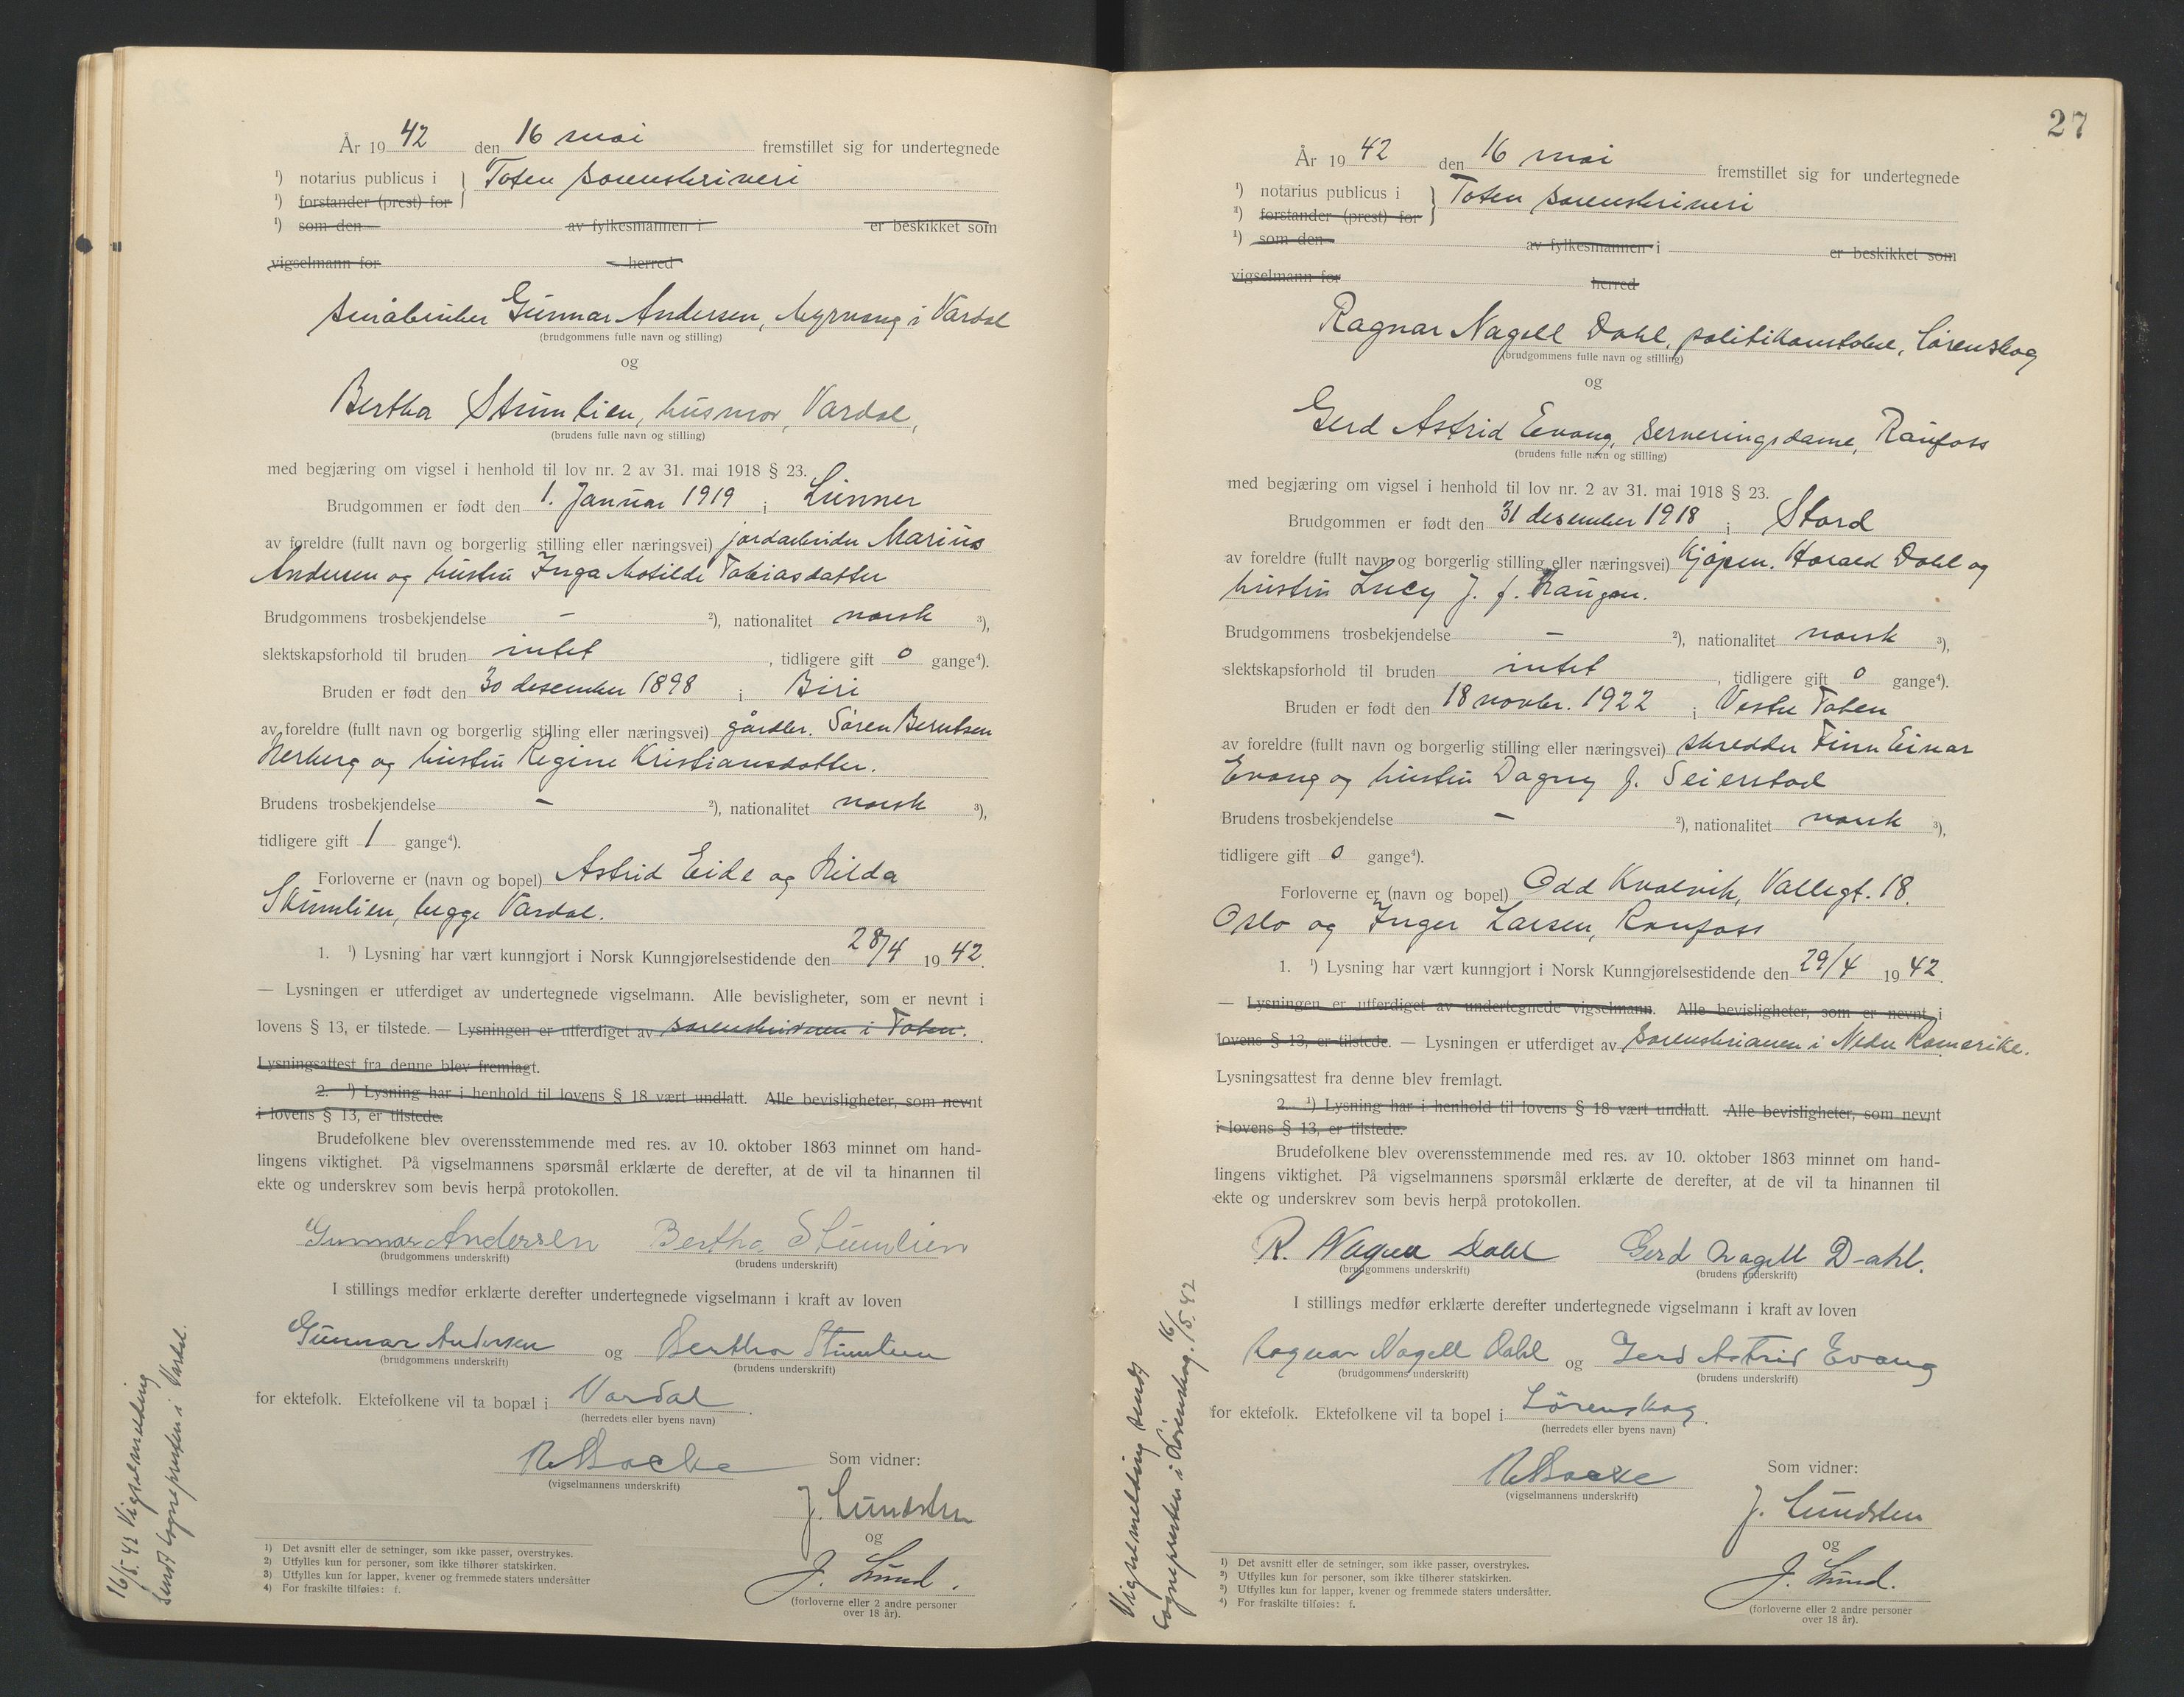 År 19 42 den 16 mai fremstillet sig for undertegnede
1) notarius publicus i } Toten sorenskriveri
1) forstander (prest) for
1) som den av fylkesmannen i er beskikket som
vigselmann for herred
småbruker Gunnar Andersen, Myrvang i Vardal
(brudgommens fulle navn og stilling)
og
Bertha Skumlien, husmor, Vardal,
(brudens fulle navn og stilling)
med begjæring om vigsel i henhold til lov nr. 2 av 31. mai 1918 § 23.
Brudgommen er født den 1. Januar 1919 i Lunner
av foreldre (fullt navn og borgerlig stilling eller næringsvei) jordarbeider Marius
Andersen og hustru Inga Matilde Tobiasdatter
Brudgommens trosbekjendelse - 2), nationalitet norsk 3),
slektskapsforhold til bruden intet, tidligere gift 0 gange4).
Bruden er født den 30 desember 1898 i Biri
av foreldre (fullt navn og borgerlig stilling eller næringsvei) gårdbr. Søren Berntsen
og hustru Regine Kristiansdatter.
Brudens trosbekjendelse - 2), nationalitet norsk 3),
tidligere gift 1 gange4).
Forloverne er (navn og bopel) Astrid Eide og Hilda
Skumlien, begge Vardal.
1. 1) Lysning har vært kunngjort i Norsk Kunngjørelsestidende den 28/4 19 42.
— Lysningen er utferdiget av undertegnede vigselmann. Alle bevisligheter, som er nevnt i
lovens § 13, er tilstede. — Lysningen er utferdiget av sorenskriveren i Toten.
Lysningsattest fra denne blev fremlagt.
2. 1) Lysning har i henhold til lovens § 18 vært undlatt. Alle bevisligheter, som nevnt
i lovens § 13, er tilstede.
Brudefolkene blev overensstemmende med res. av 10. oktober 1863 minnet om hand-
lingens viktighet. På vigselmannens spørsmål erklærte de derefter, at de vil ta hinannen til
ekte og underskrev som bevis herpå protokollen.
Gunnar Andersen Bertha Skumlien
(brudgommens underskrift) (brudens underskrift)
I stillings medfør erklærte derefter undertegnede vigselmann i kraft av loven
Gunnar Andersen og Bertha Skumlien
(brudgommens underskrift) (brudens underskrift)
for ektefolk. Ektefolkene vil ta bopæl i Vardal.
(herredets eller byens navn)
Som vidner:
(vigselmannens underskrift)
J. Lundsten
og
J. Lund.
(forloverne eller 2 andre personer
over 18 år).
1) Det avsnitt eller de setninger, som ikke passer, overstrykes.
2) Utfylles kun for personer, som ikke tilhører statskirken.
3) Utfylles kun for lapper, kvener og fremmede staters undersåtter
4) For fraskilte tilføies: f.
16/5. 42 Vigselmelding
sendt sognepresten i Vardal.
27
År 19 42 den 16 mai fremstillet sig for undertegnede
1) notarius publicus i } Toten sorenskriveri
1) forstander (prest) for
1) som den av fylkesmannen i er beskikket som
vigselmann for herred
Ragnar Nagell Dahl, politikonstabel, Lørenskog
(brudgommens fulle navn og stilling)
og
Gerd Astrid Evang, serveringsdame, Raufoss
(brudens fulle navn og stilling)
med begjæring om vigsel i henhold til lov nr. 2 av 31. mai 1918 § 23.
Brudgommen er født den 31 desember 1918 i Stord
av foreldre (fullt navn og borgerlig stilling eller næringsvei) kjøpm. Harald Dahl og
hustru Lucy J. f.
Brudgommens trosbekjendelse - 2), nationalitet norsk 3),
slektskapsforhold til bruden intet, tidligere gift 0 gange4).
Bruden er født den 18 novbr. 1922 i Vestre Toten
av foreldre (fullt navn og borgerlig stilling eller næringsvei) skredder Finn Einar
Evang og hustru Dagny f. Seierstad
Brudens trosbekjendelse - 2), nationalitet norsk 3),
tidligere gift 0 gange4).
Forloverne er (navn og bopel) Odd Kvalvik, Vallegt. 18,
Oslo og Inger Larsen, Raufoss
1. 1) Lysning har vært kunngjort i Norsk Kunngjørelsestidende den 29/4 19 42.
— Lysningen er utferdiget av undertegnede vigselmann. Alle bevisligheter, som er nevnt i
lovens § 13, er tilstede. — Lysningen er utferdiget av sorenskriveren i Nedre Romerike.
Lysningsattest fra denne blev fremlagt.
2. 1) Lysning har i henhold til lovens § 18 vært undlatt. Alle bevisligheter, som nevnt
i lovens § 13, er tilstede.
Brudefolkene blev overensstemmende med res. av 10. oktober 1863 minnet om hand-
lingens viktighet. På vigselmannens spørsmål erklærte de derefter, at de vil ta hinannen til
ekte og underskrev som bevis herpå protokollen.
R. Nagell Dahl Gerd Nagell Dahl.
(brudgommens underskrift) (brudens underskrift)
I stillings medfør erklærte derefter undertegnede vigselmann i kraft av loven
Ragnar Nagell Dahl og Gerd Astrid Evang
(brudgommens underskrift) (brudens underskrift)
for ektefolk. Ektefolkene vil ta bopel i Lørenskog.
(herredets eller byens navn)
Som vidner:
(vigselmannens underskrift)
J. Lundsten
og
J. Lund.
(forloverne eller 2 andre personer
over 18 år).
1) Det avsnitt eller de setninger, som ikke passer, overstrykes.
2) Utfylles kun for personer, som ikke tilhører statskirken.
3) Utfylles kun for lapper, kvener og fremmede staters undersåtter.
4) For fraskilte tilføies: f.
Vigselmelding sendt
sognepresten i Lørenskog. 16/5. 42